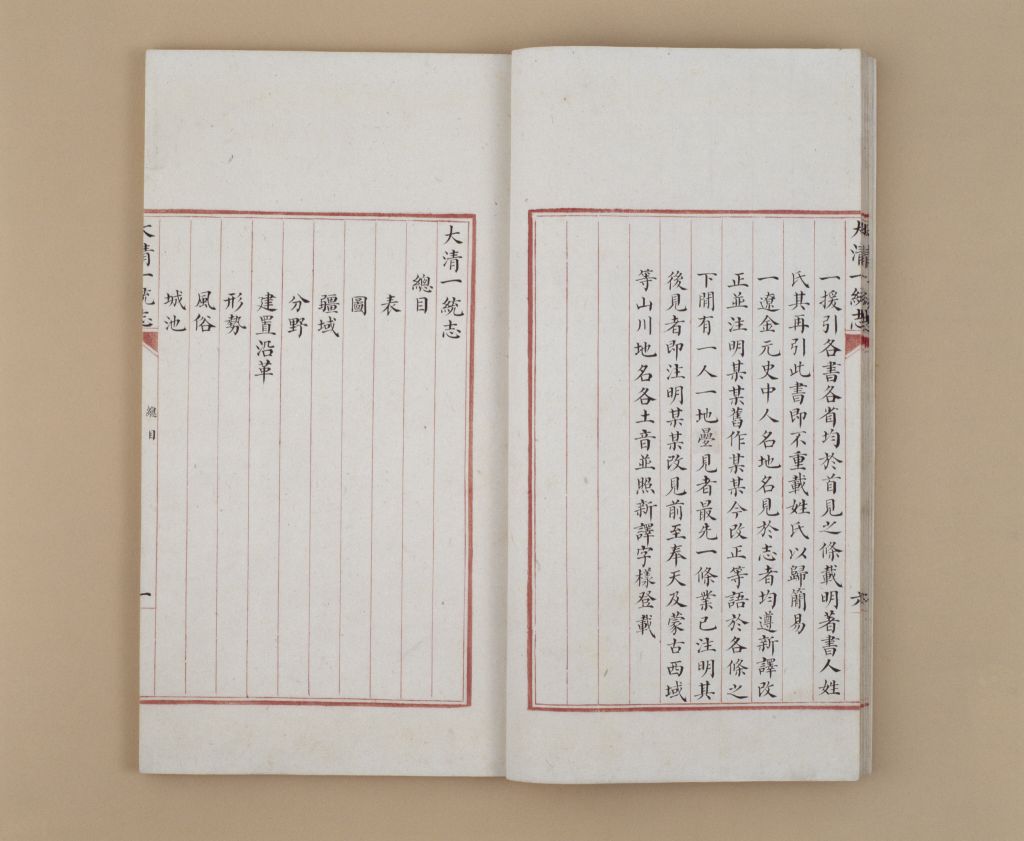 大清一統志
六
一援引各書各省均於首見之條載明著書人姓
氏其再引此書即不重載姓氏以歸簡易
一遼金元史中人名地名見於志者均遵新譯改
正並注明某某舊作某某今改正等語於各條之
下開有一人一地疊見者最先一條業已注明其
後見者即注明某某改見前至奉天及蒙古西域
等山川地名各土音並照新譯字樣登載
大清一統志
總目
表
圖
疆域
分野
建置沿革
形勢
風俗
城池
大清一統志
總目
一